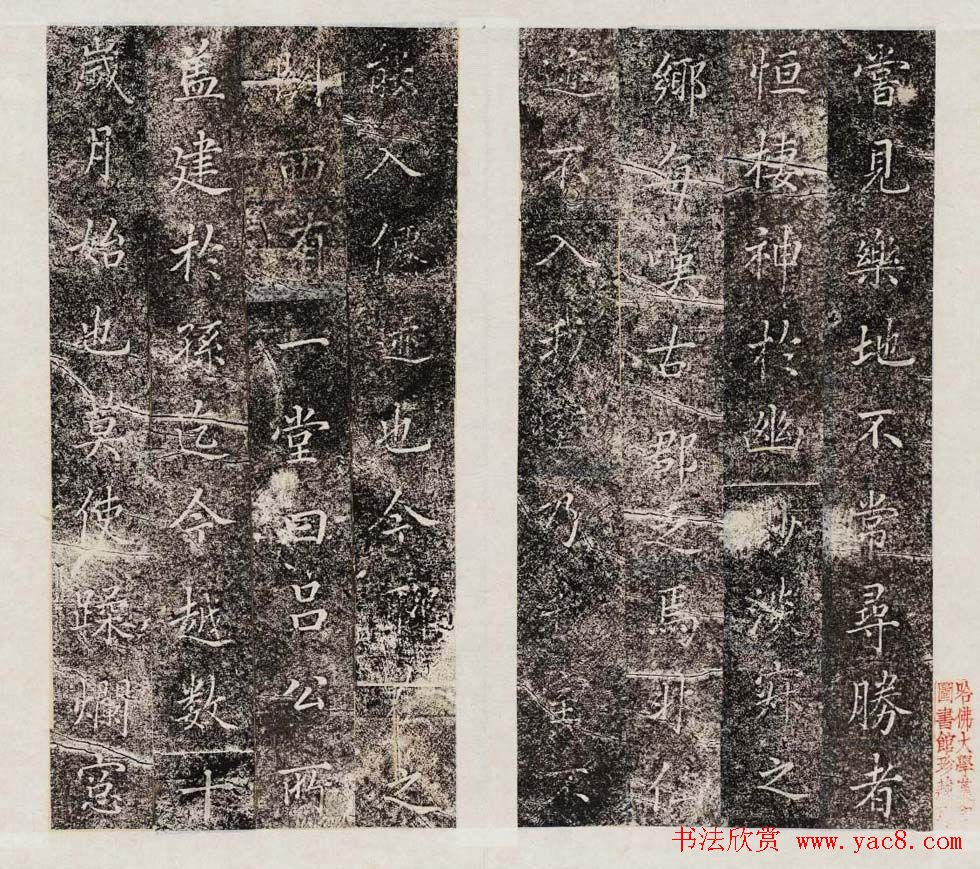 嘗見樂地不常尋勝者
恒棲神於幽漠之
鄉每嘆古郡之馬非仙
迹不入我室乃我室不
能入僊迹也今之
西有一堂曰吕公所
盖建於孫迄今越数十
歲月始也莫使爛窓
哈佛大學
圖書館珍
书法欣赏 www.yac8.com